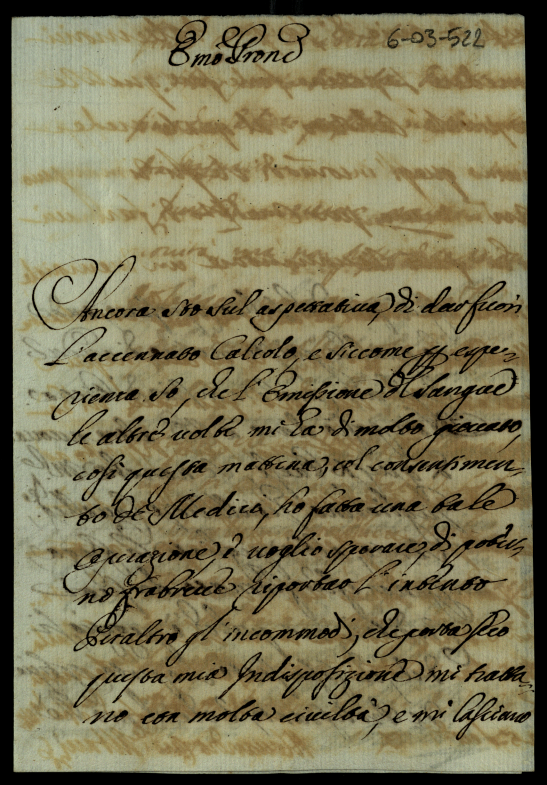 6-03-522
Emo Prone
Ancora sto sul aspettativa, di dar fuori
L'accennato Calcolo, e siccome p espe-
rienza so, che l'Emissione d Sangue
le altre volte mi ha di molto giovato,
così questa mattina, col consentimen-
to de Medici, ho fatta una tale
Operazione, e voglio sperare, di
riportar l'intento
Peraltro gl'incommodi, che porta seco
questa mia Indisposizione mi tratta-
no con molta civiltà, e mi lasciano